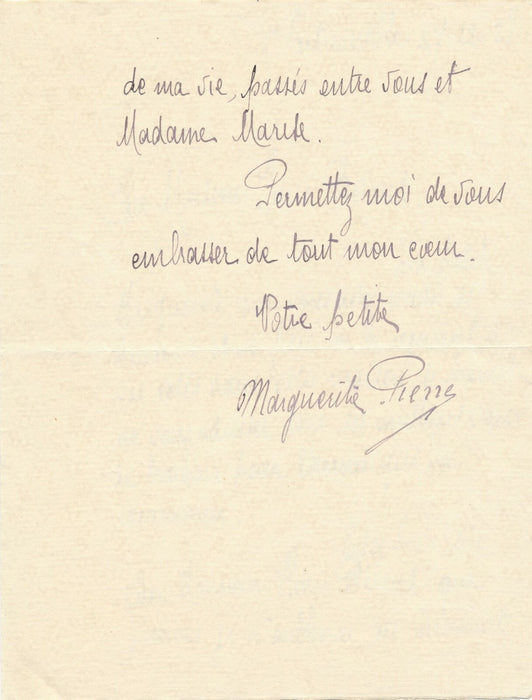 de ma vie, passés entre vous et
Madame Marese.
Permettez moi de vous
embrasser de tout mon cœur.
Votre petite
Marguerite Pierre